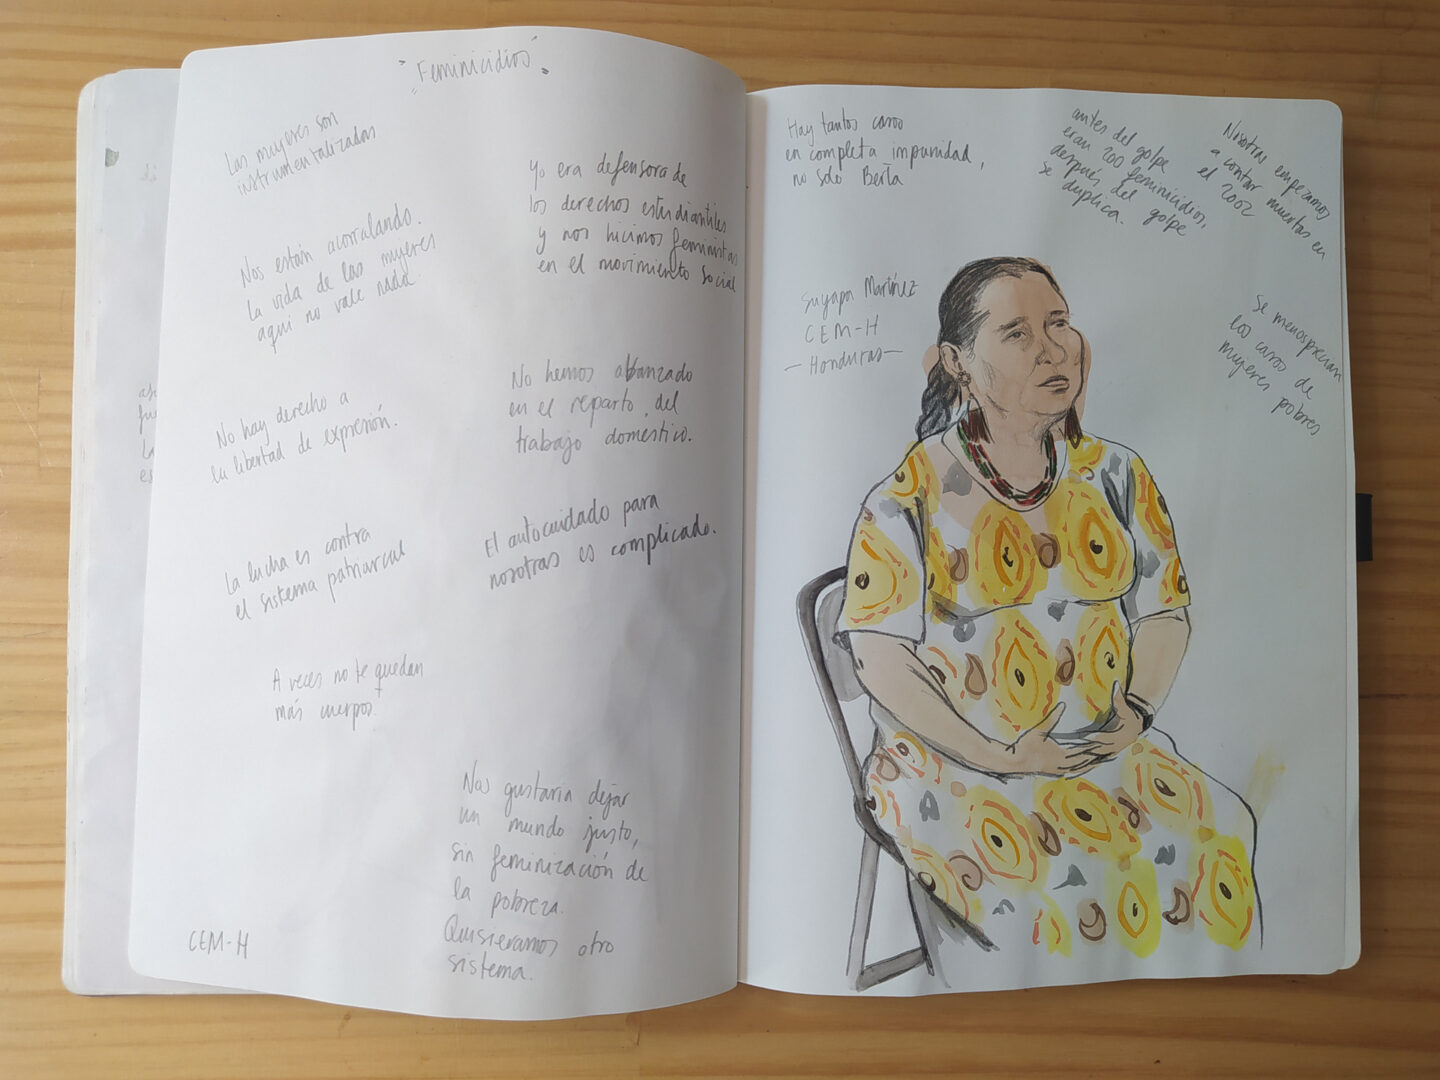 "Feminicidios"
Las mujeres son
instrumentalizadas
Nos están acorralando.
la vida de las mujeres
aquí no vale nada
No hay derecho a
la libertad de expresión.
La lucha es contra
el sistema patriarcal
A veces no te quedan
más cuerpos.
CEM-H
Yo era defensora de
los derechos estudiantiles
y nos hicimos feministas
en el movimiento social
No hemos abanzado
en el reparto del
trabajo doméstico.
El autocuidado para
nosotras es complicado.
Nos gustaría dejar
un mundo justo,
sin feminización de
la pobreza.
Quisieramos otro
sistema.
Hay tantos casos
en completa impunidad,
no solo Berta
antes del golpe
eran 200 feminicidios,
después del golpe
se duplica.
Nosotras empezamos
a contar muertas en
el 2002
Suyapa Martínez
CEM-H
- Honduras -
Se menosprecian
los casos de
mujeres pobres